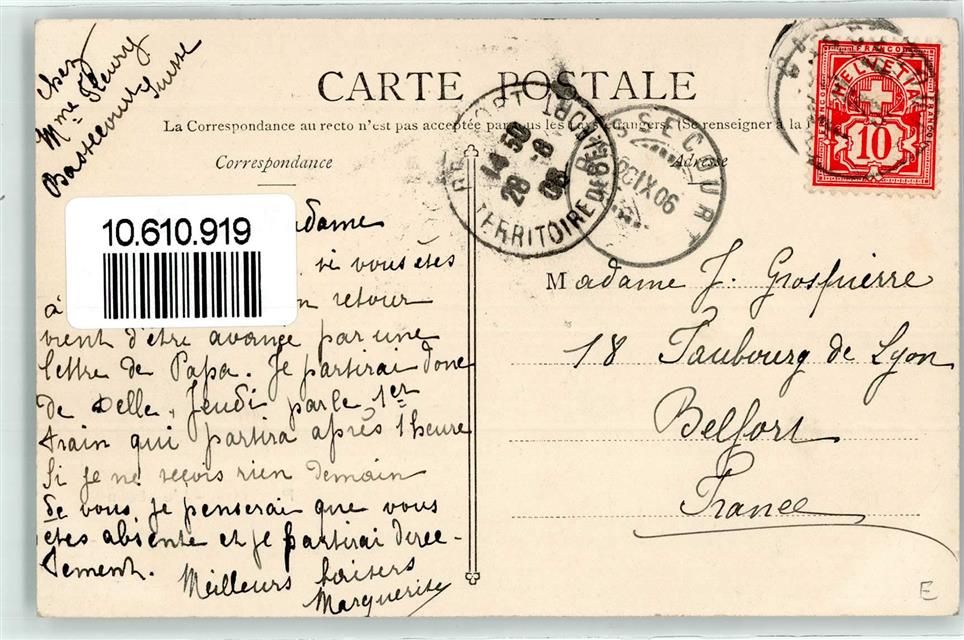 chez
Mme Fleury
Bassecourt
Suisse
CARTE POSTALE
La Correspondance au recto n'est pas acceptée par tous les pays étrangers. (Se renseigner à la
Correspondance
Adresse
FRANCO
HELVETIA
10
BELFORT
14 50
28 -8
06
TERRITOIRE DE BELFORT
BASSECOURT
10.610.919
si vous êtes
à
retour
vient d'être avancé par une
lettre de Papa. Je partirai donc
de Delle, Jeudi par le 1er
train qui partira après 1 heure
Si je ne reçois rien demain
de vous, je penserai que vous
êtes absente et je partirai direc-
tement.
Meilleurs baisers
Marguerite
Madame J. Grospierre
18 Faubourg de Lyon
Belfort
France
E